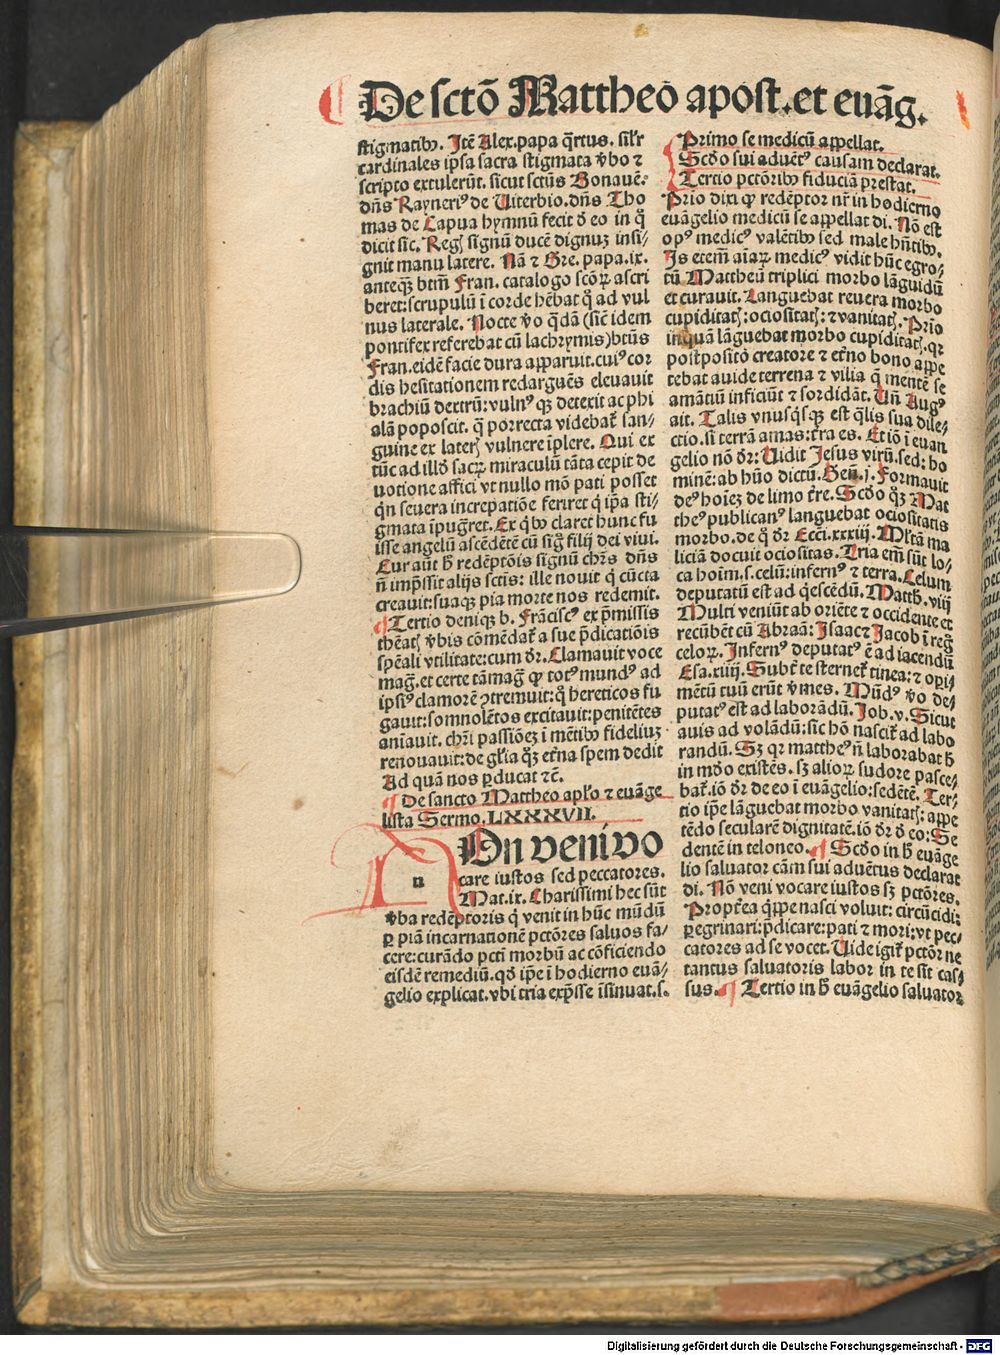 De sctō Mattheo apost. et euāg.
stigmatibꝰ. Itē Alex. papa q̄rtus. silr
cardinales ipsa sacra stigmata v̄bo ⁊
scripto extulerūt. sicut sctūs Bonauē.
dn̄s Rayneriꝰ de Uiterbio. dn̄s Tho
mas de Capua hymnū fecit d̄ eo in q̄
dicit sic. Regꝭ signū ducē dignuꝫ insi⸗
gnit manu latere. Nā ⁊ Gre. papa. ix.
anteqꝫ btm̄ Fran. catalogo scōꝝ ascri
beret: scrupulū ī corde hēbat qd̓ ad vul
nus laterale. Nocte v̄o q̄dā (sic̄ idem
pontifex referebat cū lachrymis) btūs
Fran. eidē facie dura apparuit. cuiꝰ cor
dis hesitationem redarguēs eleuauit
brachiū dextrū: vulnꝰ qꝫ detexit ac phi
alā poposcit. q̄ porrecta videbat̄ san⸗
guine ex laterꝭ vulnere īplere. Qui ex
tūc ad illd̓ sacꝝ miraculū tāta cepit de
uotione affici vt nullo mō pati posset
qn̄ seuera increpatiōe feriret q̄ ip̄a sti⸗
gmata īpuḡret. Ex qͥbꝰ claret hunc fu
isse angelū ascēdētē cū sig̊ filij dei viui.
Cur aūt h̄ redēptōis signū chr̄s dn̄s
n̄ imp̄ssit alijs sctīs: ille nouit q̄ cūcta
creauit: suaqꝫ pia morte nos redemit.
¶ Tertio deniqꝫ b. Frāciscꝰ ex p̄missis
thēatꝭ v̄bis cōmēdat̄ a sue p̄dicatiōis
spēali vtilitate: cum dr̄. Clamauit voce
maḡ. et certe tāmaḡ ꝙ totꝰ mundꝰ ad
ipsiꝰ clamorē ꝯtremuit: q̄ hereticos fu
gauit: somnolētos excitauit: penitētes
anīauit. chr̄i passiōeꝫ ī mētibꝰ fideliuꝫ
renouauit: de gl̄ia qͦꝫ et̄na spem dedit
Ad quā nos ꝑducat ⁊c̄.
¶ De sancto Mattheo apl̄o ⁊ euāge
lista Sermo. LXXXVII.
n
On veni vo
care iustos sed peccatores.
Mat. ix. Charissimi hec sūt
v̄ba redēptoris q̄ venit in hūc mūdū
ꝑ piā incarnationē pctōres saluos fa⸗
cere: curādo pcti morbū ac cōficiendo
eisdē remediū. qd̓ ip̄e ī hodierno euā⸗
gelio explicat. vbi tria exp̄sse īsinuat. s.
Primo se medicū appellat.
Scd̓o sui aduētꝰ causam declarat.
Tertio pctōribꝰ fiduciā prestat.
Prīo dixi ꝙ redēptor nr̄ in hodierno
euāgelio medicū se appellat di. Nō est
opꝰ medicꝰ valētibꝰ sed male hn̄tibꝰ.
Is etem̄ aīaꝝ medicꝰ vidit hūc egro⸗
tū Mattheū triplici morbo lāguidū
et curauit. Languebat reuera morbo
cupiditatꝭ: ociositatꝭ: ⁊ vanitatꝭ. Prīo
inquā lāguebat morbo cupiditatꝭ. qꝛ
postposito creatore ⁊ et̄no bono appe
tebat auide terrena ⁊ vilia q̄ mentē se
amātiū inficiūt ⁊ sordidāt. Un̄ Augꝰ
ait. Talis vnusqͥsqꝫ est q̄lis sua dile⸗
ctio. si terrā amas: t̄ra es. Et iō ī euan
gelio nō dr̄: Uidit Jesus virū. sed: ho
minē: ab hūo dictū. Geñ. j. Formauit
deꝰ hoieꝫ de limo t̄re. Scd̓o qͦꝫ Mat
theꝰ publicanꝰ languebat ociositatis
morbo. de q̊ dr̄ Ecci. xxxiij. Ml̓tā ma
liciā docuit ociositas. Tria em̄ sūt lo⸗
ca hoīm. s. celū: infernꝰ ⁊ terra. Celum
deputatū est ad qͥescēdū. Matth. viij
Multi veniūt ab oriēte ⁊ occidente et
recūbēt cū Abraā: Isaac ⁊ Jacob ī reg̊
celoꝝ. Infernꝰ deputatꝰ ē ad iacendū
Esa. xiiij. Subt̄ te sternet̄ tinea: ⁊ opi⸗
mētū tuū erūt v̄mes. Mūdꝰ v̄o de⸗
putatꝰ est ad laborādū. Job. v. Sicut
auis ad volādū: sic hō nascit̄ ad labo
randū. Sꝫ qꝛ mattheꝰ n̄ laborabat h̄
in mūdo existēs. sꝫ alioꝝ sudore pasce⸗
bat̄. iō dr̄ de eo ī euāgelio: sedētē. Ter⸗
tio ip̄e lāguebat morbo vanitatꝭ: appe
tēdo secularē dignitatē. iō dr̄ d̄ eo: Se
dentē in teloneo. ¶ Scd̓o in h̄ euāge
lio saluator cām sui aduētus declarat
di. Nō veni vocare iustos sꝫ pctōres.
Propt̄ea qͥppe nasci voluit: circūcidi:
ꝑegrinari: p̄dicare: pati ⁊ mori: vt pec⸗
catores ad se vocet. Uide igit̄ pctōr ne
tantus saluatoris labor in te sit cas⸗
sus. ¶ Tertio in h̄ euāgelio saluator
Digitalisierung gefördert durch die Deutsche Forschungsgemeinschaft - DFG